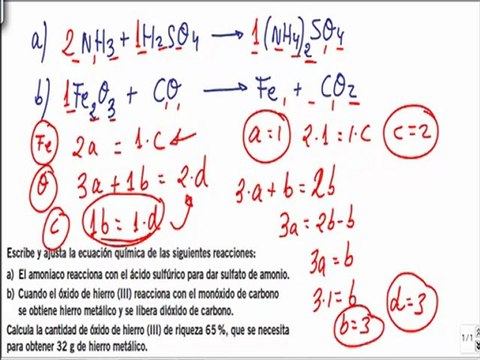 a) 2 NH3 + 1 H2SO4 → 1 (NH4)2SO4
b) 1 Fe2O3 + CO → Fe + CO2
Fe 2a = 1·c a=1 2·1=1·c c=2
O 3a+1b = 2·d 3·a+b=2b
C 1b = 1·d 3a=2b-b
3a=b
3·1=b d=3
b=3
Escribe y ajusta la ecuación química de las siguientes reacciones:
a) El amoniaco reacciona con el ácido sulfúrico para dar sulfato de amonio.
b) Cuando el óxido de hierro (III) reacciona con el monóxido de carbono
se obtiene hierro metálico y se libera dióxido de carbono.
Calcula la cantidad de óxido de hierro (III) de riqueza 65%, que se necesita
para obtener 32 g de hierro metálico.
1/1